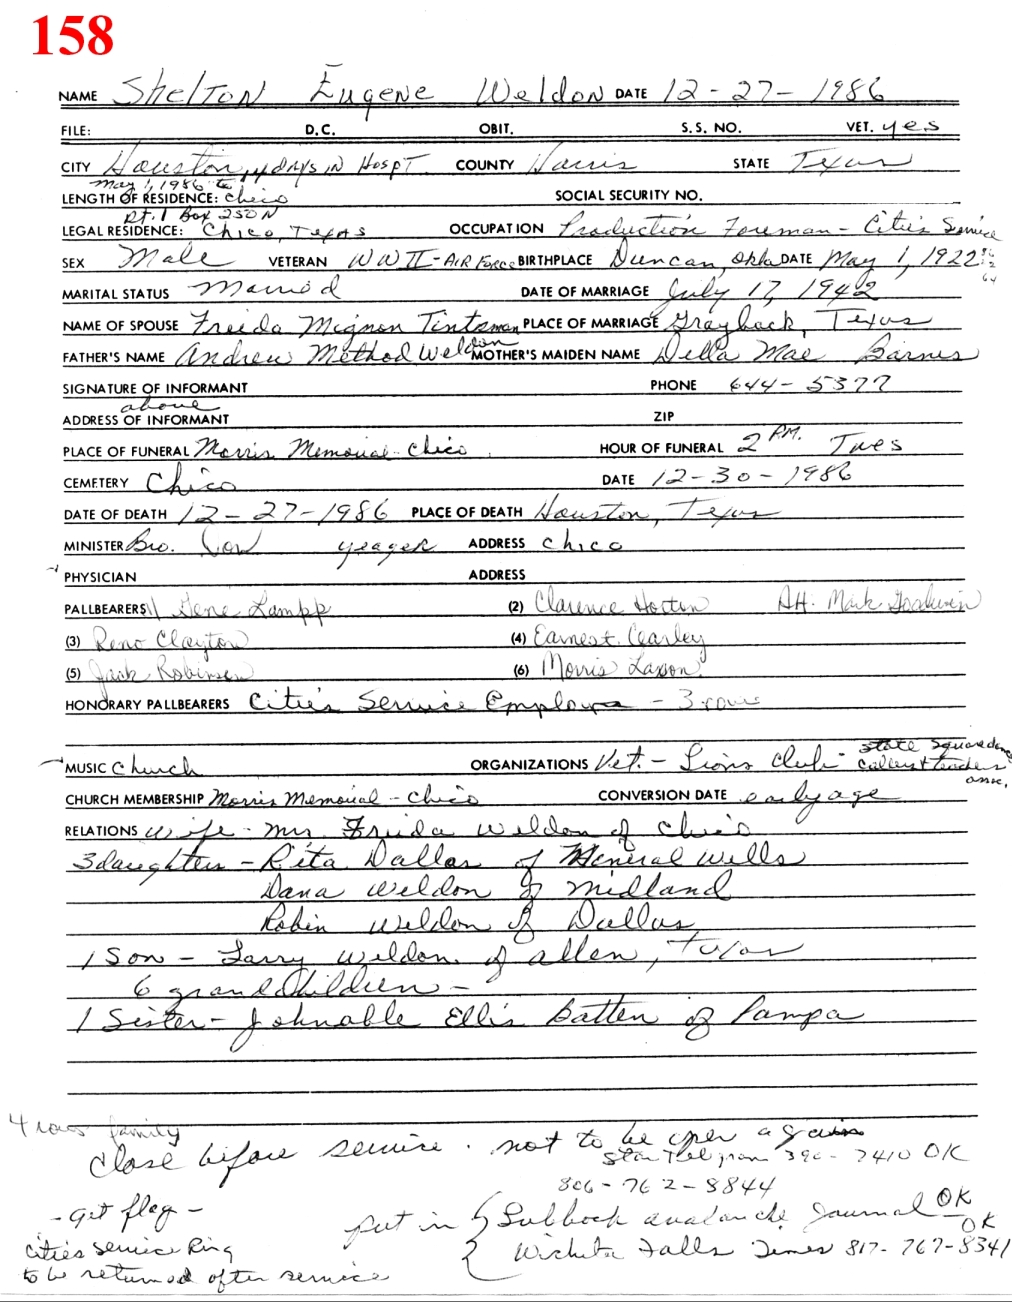 158
NAME Shelton Eugene Weldon DATE 12-27-1986
FILE: D.C. OBIT. S.S. NO. VET. yes
CITY Houston, 4 days in Hospt. COUNTY Harris STATE Texas
May 1, 1986 to
LENGTH OF RESIDENCE: Chico SOCIAL SECURITY NO.
Rt. 1 Box 250 N
LEGAL RESIDENCE: Chico, Texas OCCUPATION Production Foreman - Cities Service
SEX Male VETERAN WW II - Air Force BIRTHPLACE Duncan, Okla DATE May 1, 1922
MARITAL STATUS Married DATE OF MARRIAGE July 17, 1942
NAME OF SPOUSE Freida Mignon PLACE OF MARRIAGE Grayback, Texas
FATHER'S NAME Andrew Method Weldon MOTHER'S MAIDEN NAME Della Mae Barnes
SIGNATURE OF INFORMANT PHONE 644-5377
above
ADDRESS OF INFORMANT ZIP
PLACE OF FUNERAL Morris Memorial - Chico HOUR OF FUNERAL 2 P.M. Tues
CEMETERY Chico DATE 12-30-1986
DATE OF DEATH 12-27-1986 PLACE OF DEATH Houston, Texas
MINISTER Bro. Von Yeager ADDRESS Chico
PHYSICIAN ADDRESS
PALLBEARERS Gene Lampp (2) Clarence Horton Alt. Mark
(3) Reno Clayton (4) Earnest Cearley
(5) Jack Robinson (6) Morris
HONORARY PALLBEARERS Cities Service - 3 rows
State Squaredance
MUSIC Church ORGANIZATIONS Vet. - Lions Club - Callers & teachers
assn.
CHURCH MEMBERSHIP Morris Memorial - Chico CONVERSION DATE early age
RELATIONS wife - Mrs. Freida Weldon of Chico
3 daughters - Rita Dallas of Mineral Wells
Dana Weldon of Midland
Robin Weldon of Dallas
1 Son - Larry Weldon of Allen, Texas
6 grandchildren -
1 Sister - Johnable Ellis Batten of Pampa
4 rows family
close before service. not to be open again
Star Telegram 390-7410 OK
806-762-8844
- get flag - put in { Lubbock Avalanche Journal OK
OK
Cities Service Ring Wichita Falls Times 817-767-8341
to be returned after service